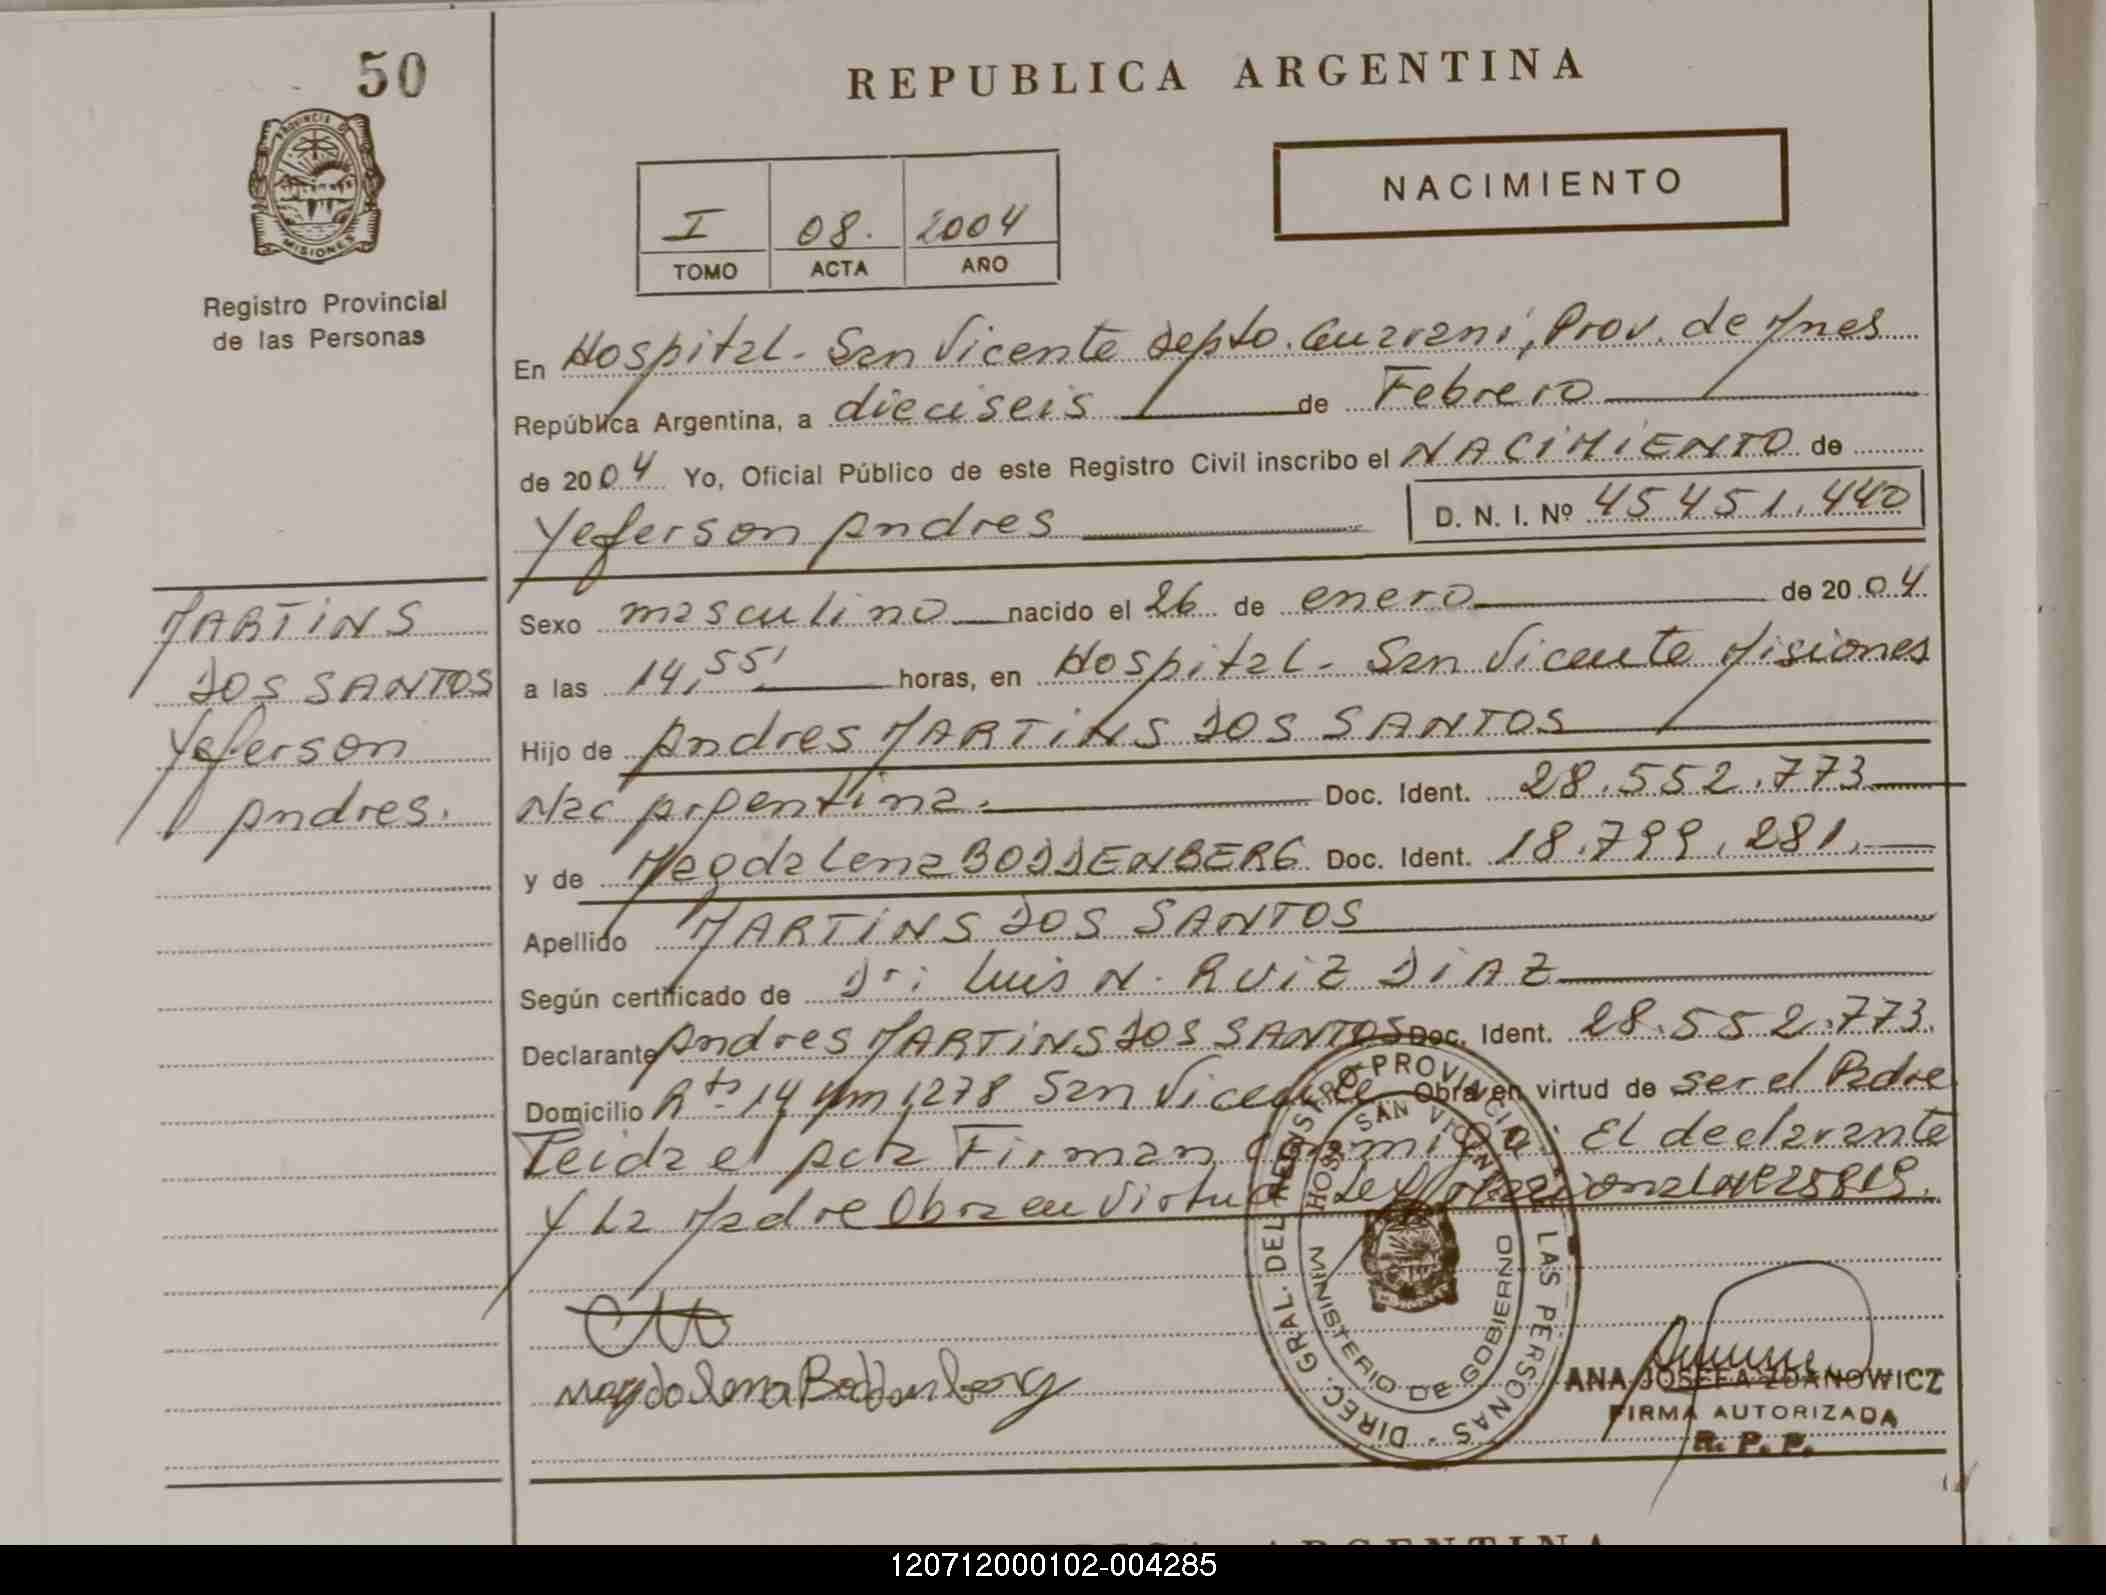 50
PROVINCIA DE
MISIONES
Registro Provincial
de las Personas
REPUBLICA ARGENTINA
NACIMIENTO
I 08. 2004
TOMO ACTA AÑO
En Hospital - San Vicente Depto. Guarani, Prov. de Mnes
República Argentina, a dieciseis de Febrero
de 2004 Yo, Oficial Público de este Registro Civil inscribo el NACIMIENTO de
Yeferson Andres D. N. I. Nº 45451.440
MARTINS
DOS SANTOS
Yeferson
Andres.
Sexo masculino nacido el 26 de enero de 2004
a las 14,55' horas, en Hospital - San Vicente Misiones
Hijo de Andres MARTINS DOS SANTOS
Nac Argentina. Doc. Ident. 28.552.773
y de Magdalena BODDENBERG Doc. Ident. 18.799.281.
Apellido MARTINS DOS SANTOS
Según certificado de Dr: Luis N. RUIZ DIAZ
Declarante Andres MARTINS DOS SANTOS Doc. Ident. 28.552.773.
Domicilio Rta 14 Km 1278 San Vicente Obra en virtud de ser el Padre
Leida el acta Firman conmigo: El declarante
y La Madre Obra en Virtud Ley Nacional Nº 25819.
Magdalena Boddenberg
DIREC. GRAL. DEL REGISTRO PROVINCIAL LAS PERSONAS
HOSP. SAN VICENTE
MINISTERIO DE GOBIERNO
ANA JOSEFA ZDANOWICZ
FIRMA AUTORIZADA
R. P. P.
REPUBLICA ARGENTINA
120712000102-004285